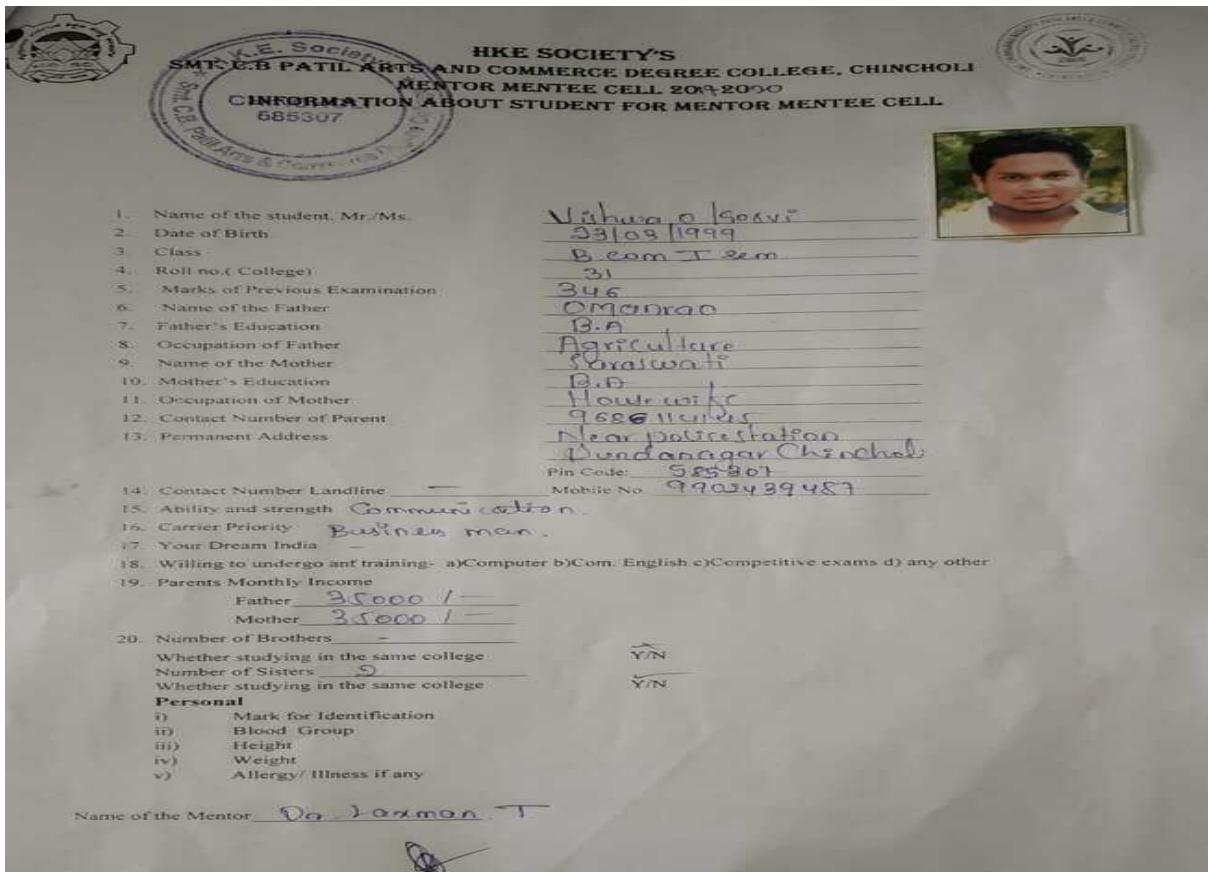 HKE SOCIETY'S
SMT. C.B PATIL ARTS AND COMMERCE DEGREE COLLEGE, CHINCHOLI
MENTOR MENTEE CELL
INFORMATION ABOUT STUDENT FOR MENTOR MENTEE CELL
K.E. Society
Smt. C.B. Patil Arts & Commerce
585307
1. Name of the student. Mr./Ms. Vishwa O
2. Date of Birth 23/03/1999
3. Class B.com I sem
4. Roll no.( College) 31
5. Marks of Previous Examination 346
6. Name of the Father Omanrao
7. Father's Education B.A
8. Occupation of Father Agriculture
9. Name of the Mother Saraswati
10. Mother's Education B.A
11. Occupation of Mother House wife
12. Contact Number of Parent
13. Permanent Address Near police station
Chincholi
Pin Code: 585307
14. Contact Number Landline — Mobile No 9902439487
15. Ability and strength Communication.
16. Carrier Priority Business man.
17. Your Dream India —
18. Willing to undergo anf training- a)Computer b)Com. English c)Competitive exams d) any other
19. Parents Monthly Income
Father 35000 /—
Mother 35000 /—
20. Number of Brothers -
Whether studying in the same college Y/N
Number of Sisters 2
Whether studying in the same college Y/N
Personal
i) Mark for Identification
ii) Blood Group
iii) Height
iv) Weight
v) Allergy/ Illness if any
Name of the Mentor Dr. Laxman. T